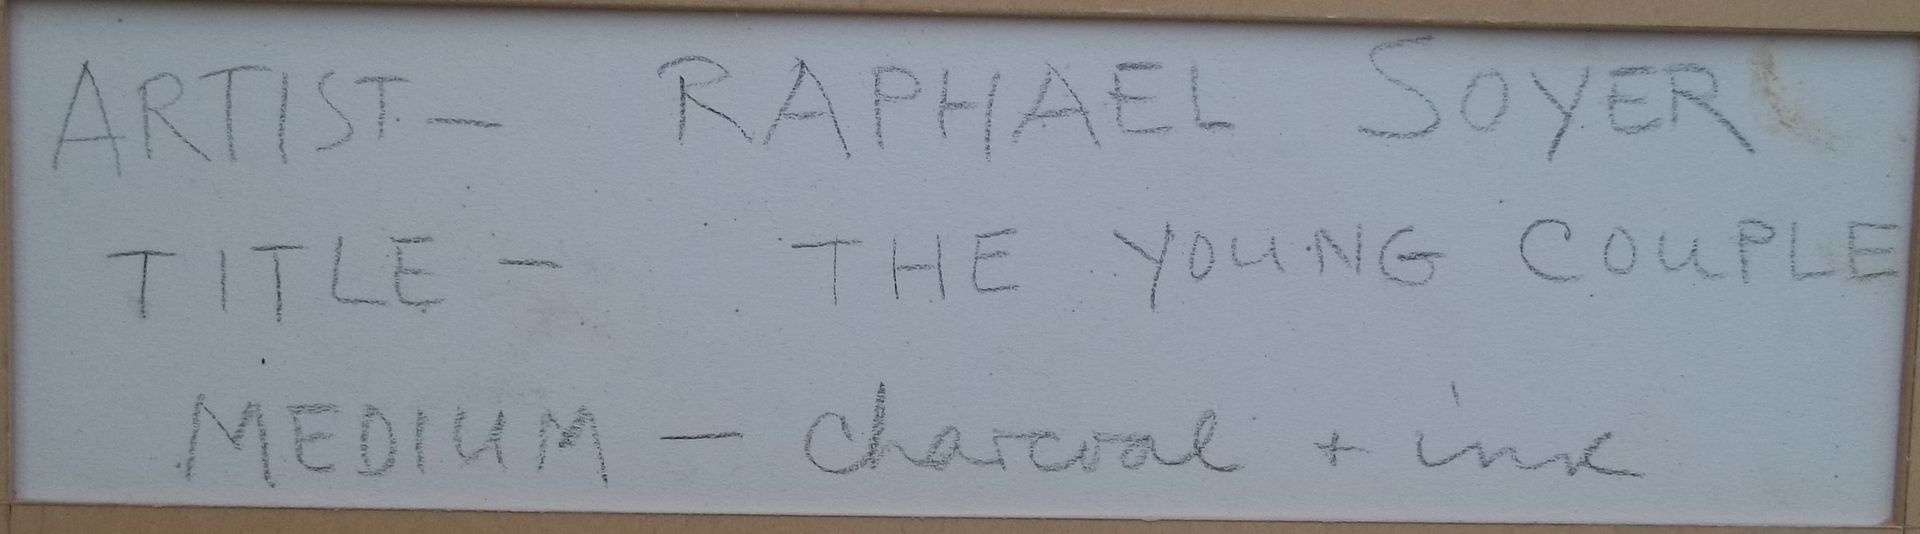 ARTIST — RAPHAEL SOYER
TITLE — THE YOUNG COUPLE
MEDIUM — Charcoal + ink